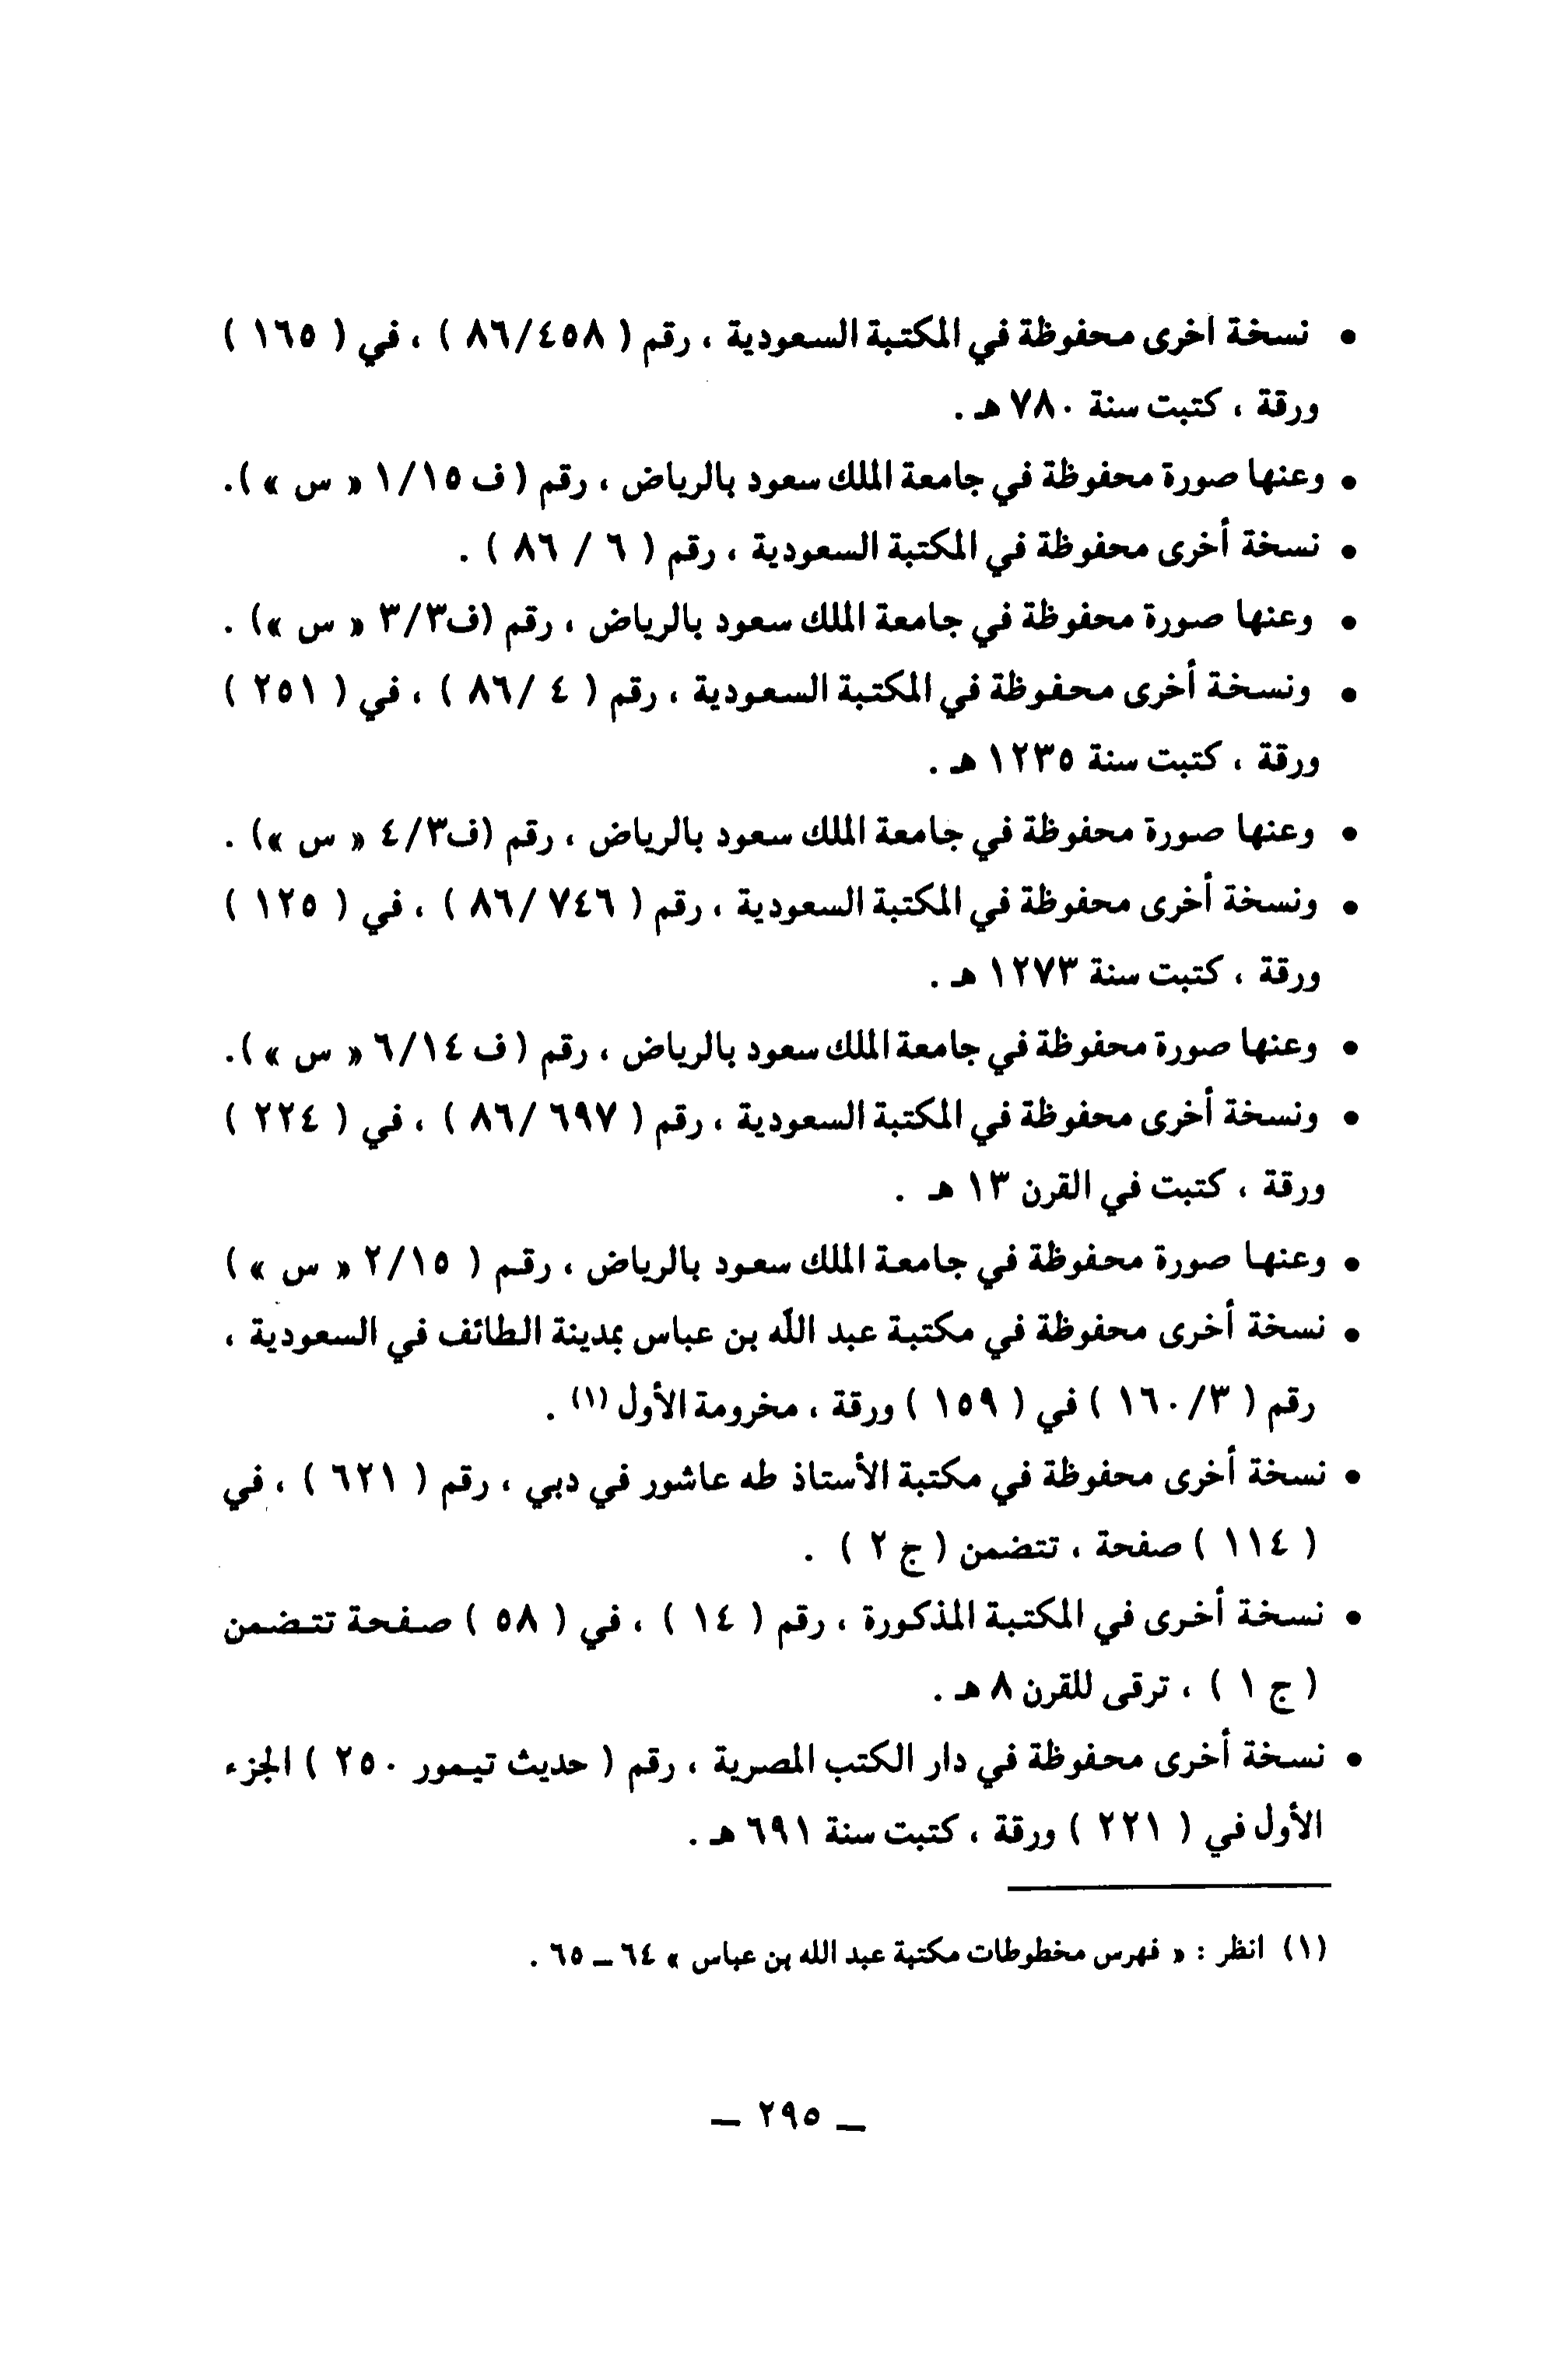 • نسخة أخرى محفوظة في المكتبة السعودية ، رقم ( ٨٦/٤٥٨ ) ، في ( ١٦٥ )
ورقة ، كتبت سنة ٧٨٠ هـ .
• وعنها صورة محفوظة في جامعة الملك سعود بالرياض ، رقم ( ف ١/١٥ « س » ) .
• نسخة أخرى محفوظة في المكتبة السعودية ، رقم ( ٦ / ٨٦ ) .
• وعنها صورة محفوظة في جامعة الملك سعود بالرياض ، رقم (ف٣/٣ « س ») .
• ونسخة أخرى محفوظة في المكتبة السعودية ، رقم ( ٤ /٨٦ ) ، في ( ٢٥١ )
ورقة ، كتبت سنة ١٢٣٥ هـ .
• وعنها صورة محفوظة في جامعة الملك سعود بالرياض ، رقم (ف٤/٣ « س ») .
• ونسخة أخرى محفوظة في المكتبة السعودية ، رقم ( ٧٤٦ /٨٦ ) ، في ( ١٢٥ )
ورقة ، كتبت سنة ١٢٧٣ هـ .
• وعنها صورة محفوظة في جامعة الملك سعود بالرياض ، رقم ( ف ٦/١٤ « س » ) .
• ونسخة أخرى محفوظة في المكتبة السعودية ، رقم ( ٦٩٧ /٨٦ ) ، في ( ٢٢٤ )
ورقة ، كتبت في القرن ١٣ هـ .
• وعنها صورة محفوظة في جامعة الملك سعود بالرياض ، رقم ( ٢/١٥ « س » )
• نسخة أخرى محفوظة في مكتبة عبد الله بن عباس بمدينة الطائف في السعودية ،
رقم ( ١٦٠/٣ ) في ( ١٥٩ ) ورقة ، مخرومة الأول (١) .
• نسخة أخرى محفوظة في مكتبة الأستاذ طه عاشور في دبي ، رقم ( ٦٢١ ) ، في
( ١١٤ ) صفحة ، تتضمن ( ج ٢ ) .
• نسخة أخرى في المكتبة المذكورة ، رقم ( ١٤ ) ، في ( ٥٨ ) صفحة تتضمن
( ج ١ ) ، ترقى للقرن ٨ هـ .
• نسخة أخرى محفوظة في دار الكتب المصرية ، رقم ( حديث تيمور ٢٥٠ ) الجزء
الأول في ( ٢٢١ ) ورقة ، كتبت سنة ٦٩١ هـ .
(١) انظر : « فهرس مخطوطات مكتبة عبد الله بن عباس » ٦٤ – ٦٥ .
– ٢٩٥ –